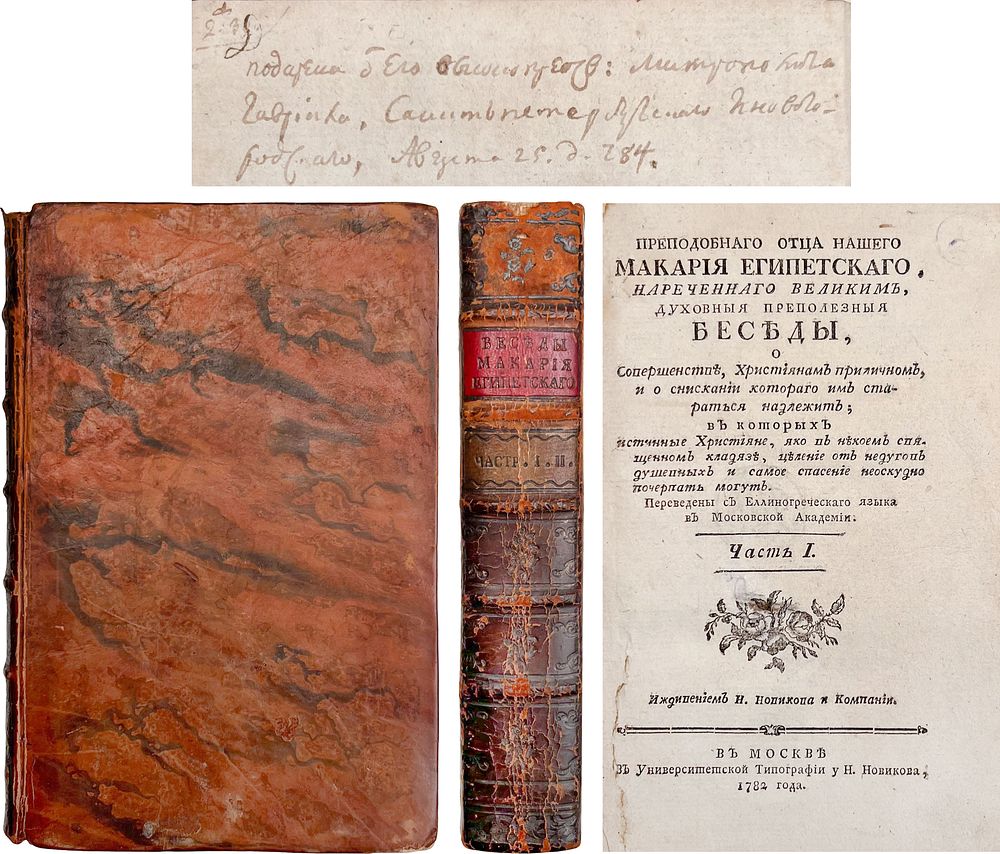 подарена ѿ Его высокопреосв: Митрополита
Гавріила, Санктъпетербургскаго Інового-
родскаго, Августа 25. д. 784.
БЕСѢДЫ
МАКАРІЯ
ЕГИПЕТСКАГО
ЧАСТР. I. II.
ПРЕПОДОБНАГО ОТЦА НАШЕГО
МАКАРІЯ ЕГИПЕТСКАГО,
НАРЕЧЕННАГО ВЕЛИКИМЪ,
ДУХОВНЫЯ ПРЕПОЛЕЗНЫЯ
БЕСѢДЫ,
О
Совершенствѣ, Христіянамъ приличномъ,
и о снисканіи котораго имъ ста-
раться надлежитъ;
въ которыхъ
истинные Христіяне, яко въ нѣкоемъ свя-
щенномъ кладязѣ, цѣленіе отъ недуговъ
душевныхъ и самое спасеніе неоскудно
почерпать могутъ.
Переведены съ Еллиногреческаго языка
въ Московской Академіи.
Часть I.
Иждивеніемъ Н. Новикова и Компаніи.
ВЪ МОСКВѢ
Въ Университетской Типографіи у Н. Новикова,
1782 года.